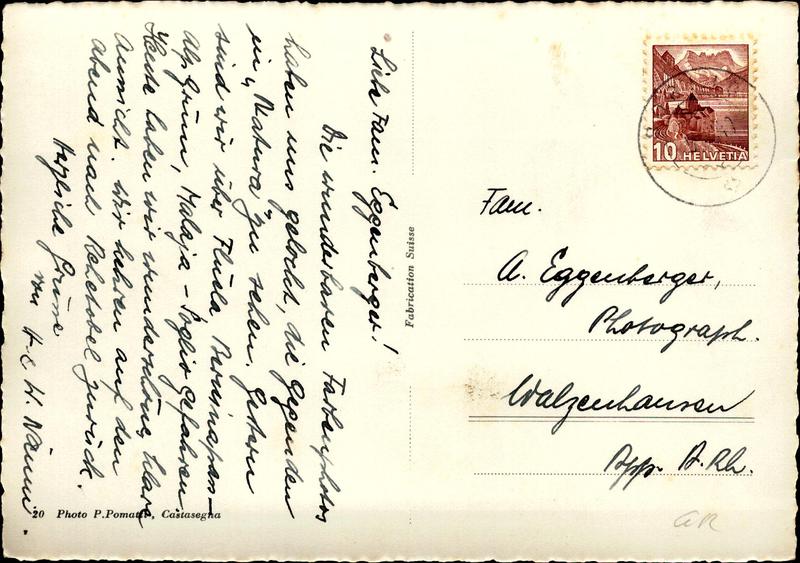 Liebe Fam. Eggenberger!
Die wunderbaren Farbenphotos
haben uns gelockt, die Gegenden
in „Natura" zu sehen. Gestern
sind wir über Flüela Berninapass-
Alp Grüm, Maloja - Soglio gefahren
Heute haben wir wunderschöne, klare
Aussicht. Wir kehren auf den
Abend nach Rehetobel zurück.
Herzliche Grüsse
H. & W.
20 Photo P. Pomatti, Castasegna
Fabrication Suisse
10 HELVETIA
Fam.
A. Eggenberger,
Photograph.
Walzenhausen
App. A. Rh.
AR